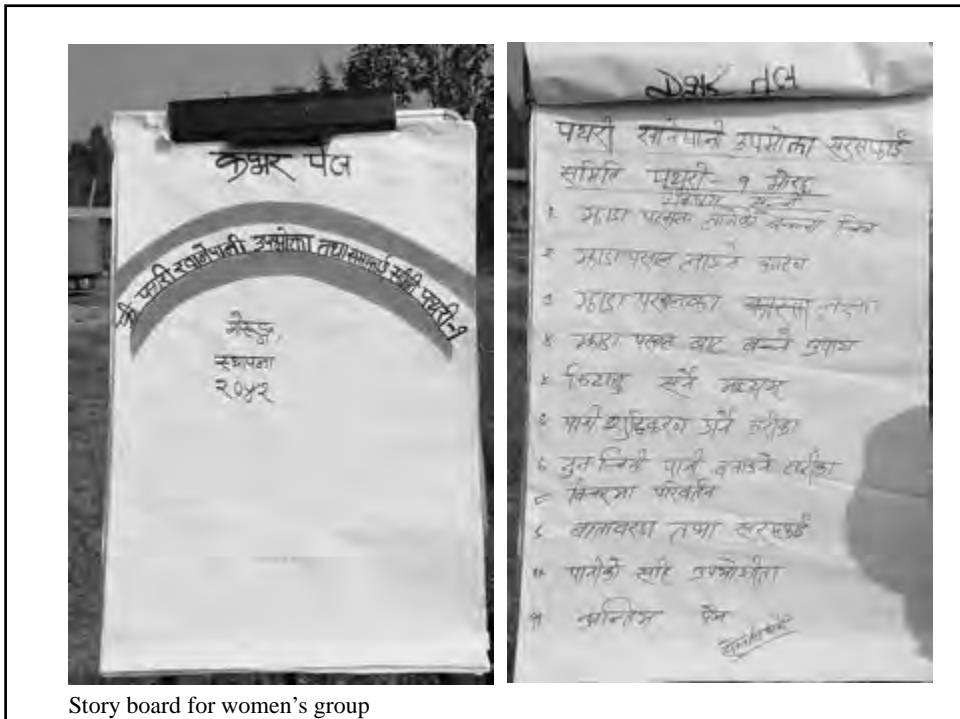 कभर पेज
श्री पथरी खानेपानी उपभोक्ता तथा सरसफाई समिति पथरी-१
मोरङ्ग,
स्थापना
२०४२
पथरी खानेपानी उपभोक्ता सरसफाई
समिति पथरी-१ मोरङ
१. झाडा पखाला लागेको बच्चा चित्र
२ झाडा पखाला लाग्ने कारण
३ झाडा पखालाका
४ झाडा पखाला बाट बच्ने उपाय
५ किटाणु सर्ने माध्यम
६ पानी शुद्धिकरण गर्ने तरीका
७ नुन चिनी पानी बनाउने तरीका
८ परिवर्तन
९ वातावरण तथा सरसफाई
१० पानीको सहि उपयोगीता
११ अन्तिम पेज
Story board for women's group